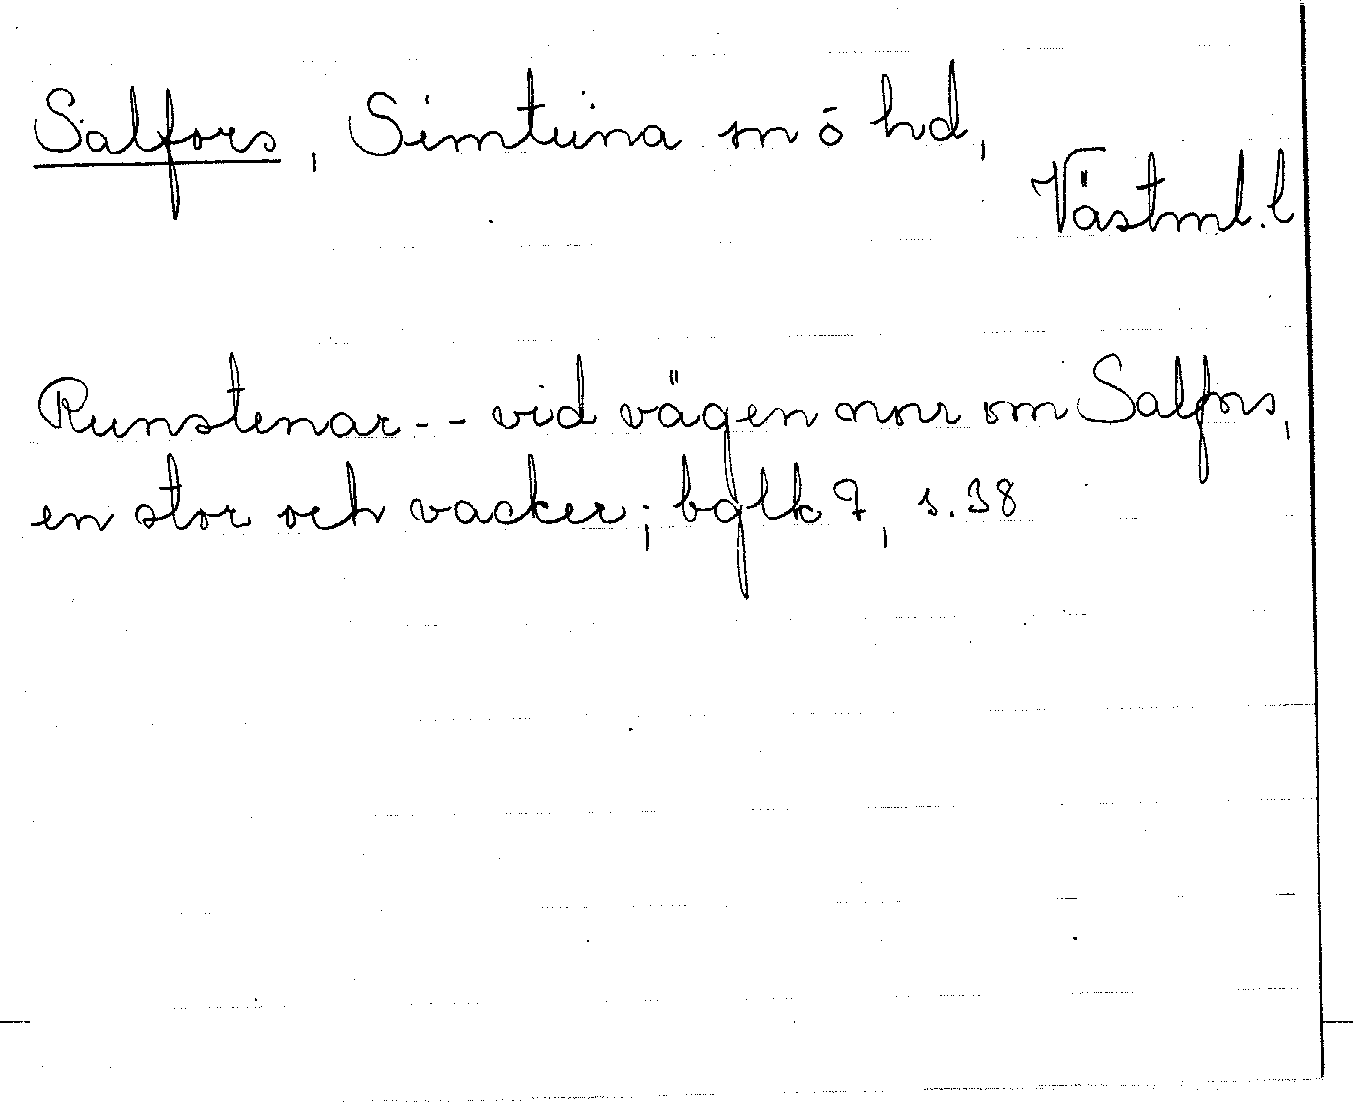 Salfors, Simtuna sn ō hd,
Västml. l
Runstenar - - vid vägen norr om Salfors,
en stor och vacker; bglk 7, s. 38